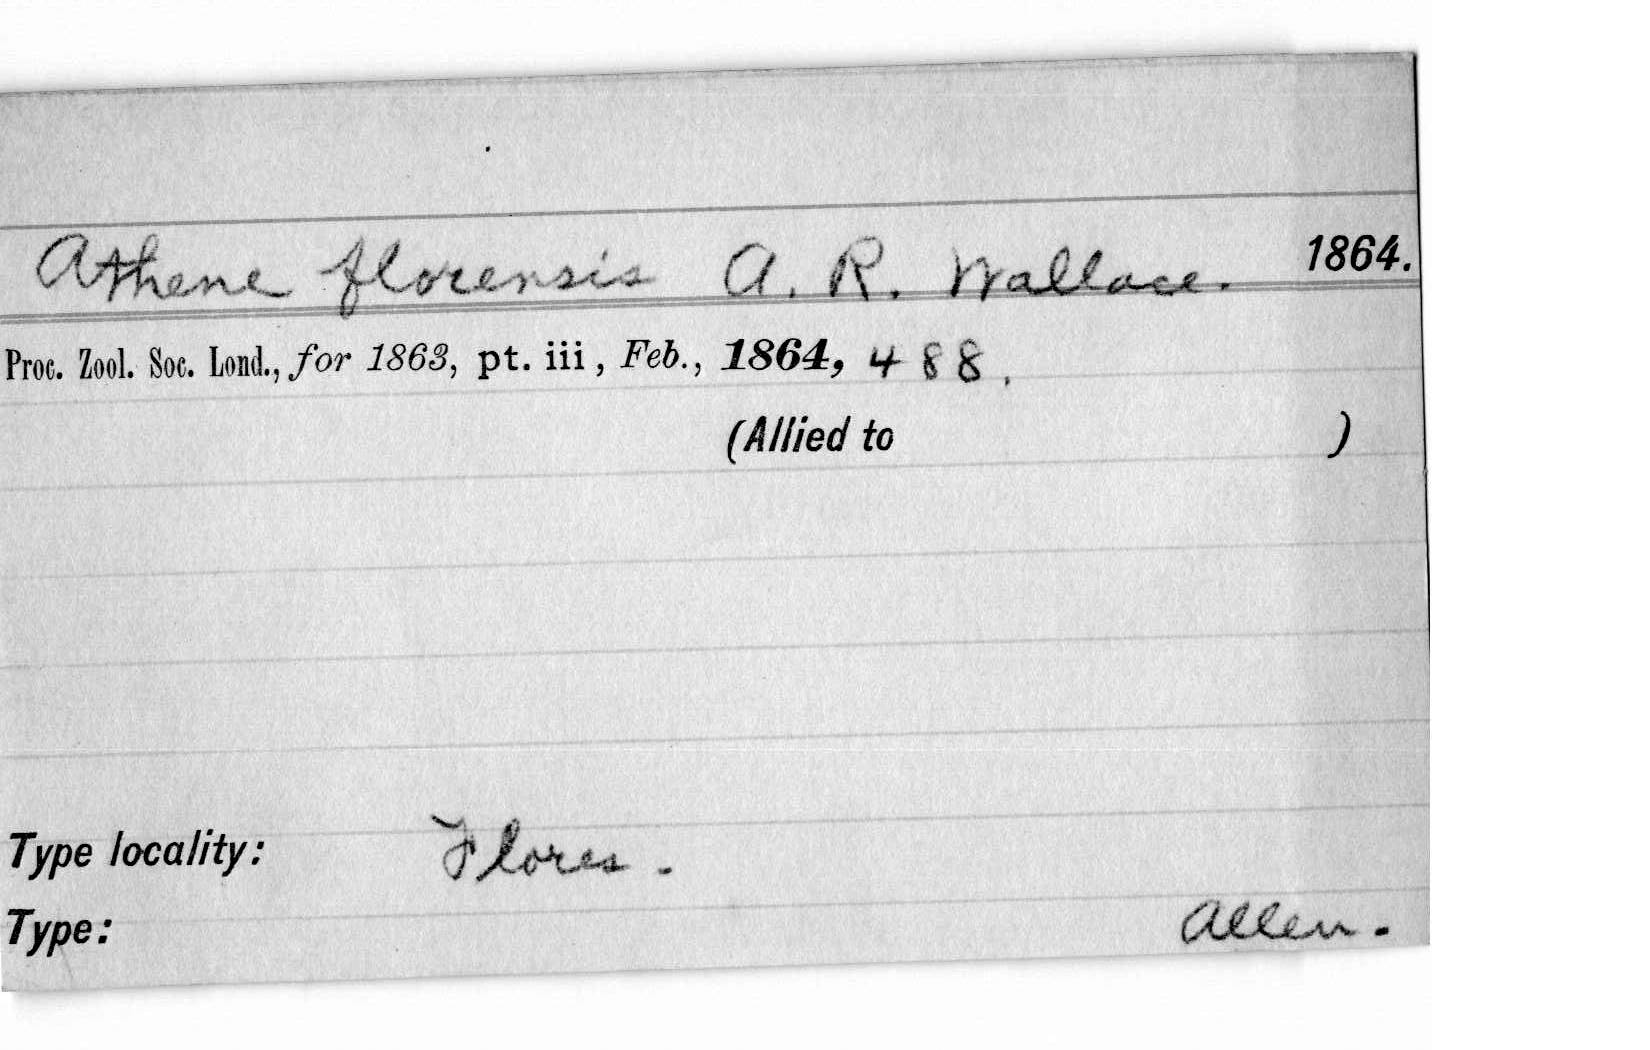 Athene florensis A. R. Wallace. 1864.
Proc. Zool. Soc. Lond., for 1863, pt. iii, Feb., 1864, 488.
(Allied to )
Type locality: Flores.
Type: Allen.